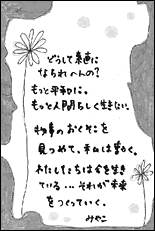 どうして素直に
なられへんの?
もっと平和に。
もっと人間らしく生きたい。
物事のおくそこを
見つめて、私は驚く。
わたしたちは今を生き
ている…それが未来
をつくっていく。
みやこ